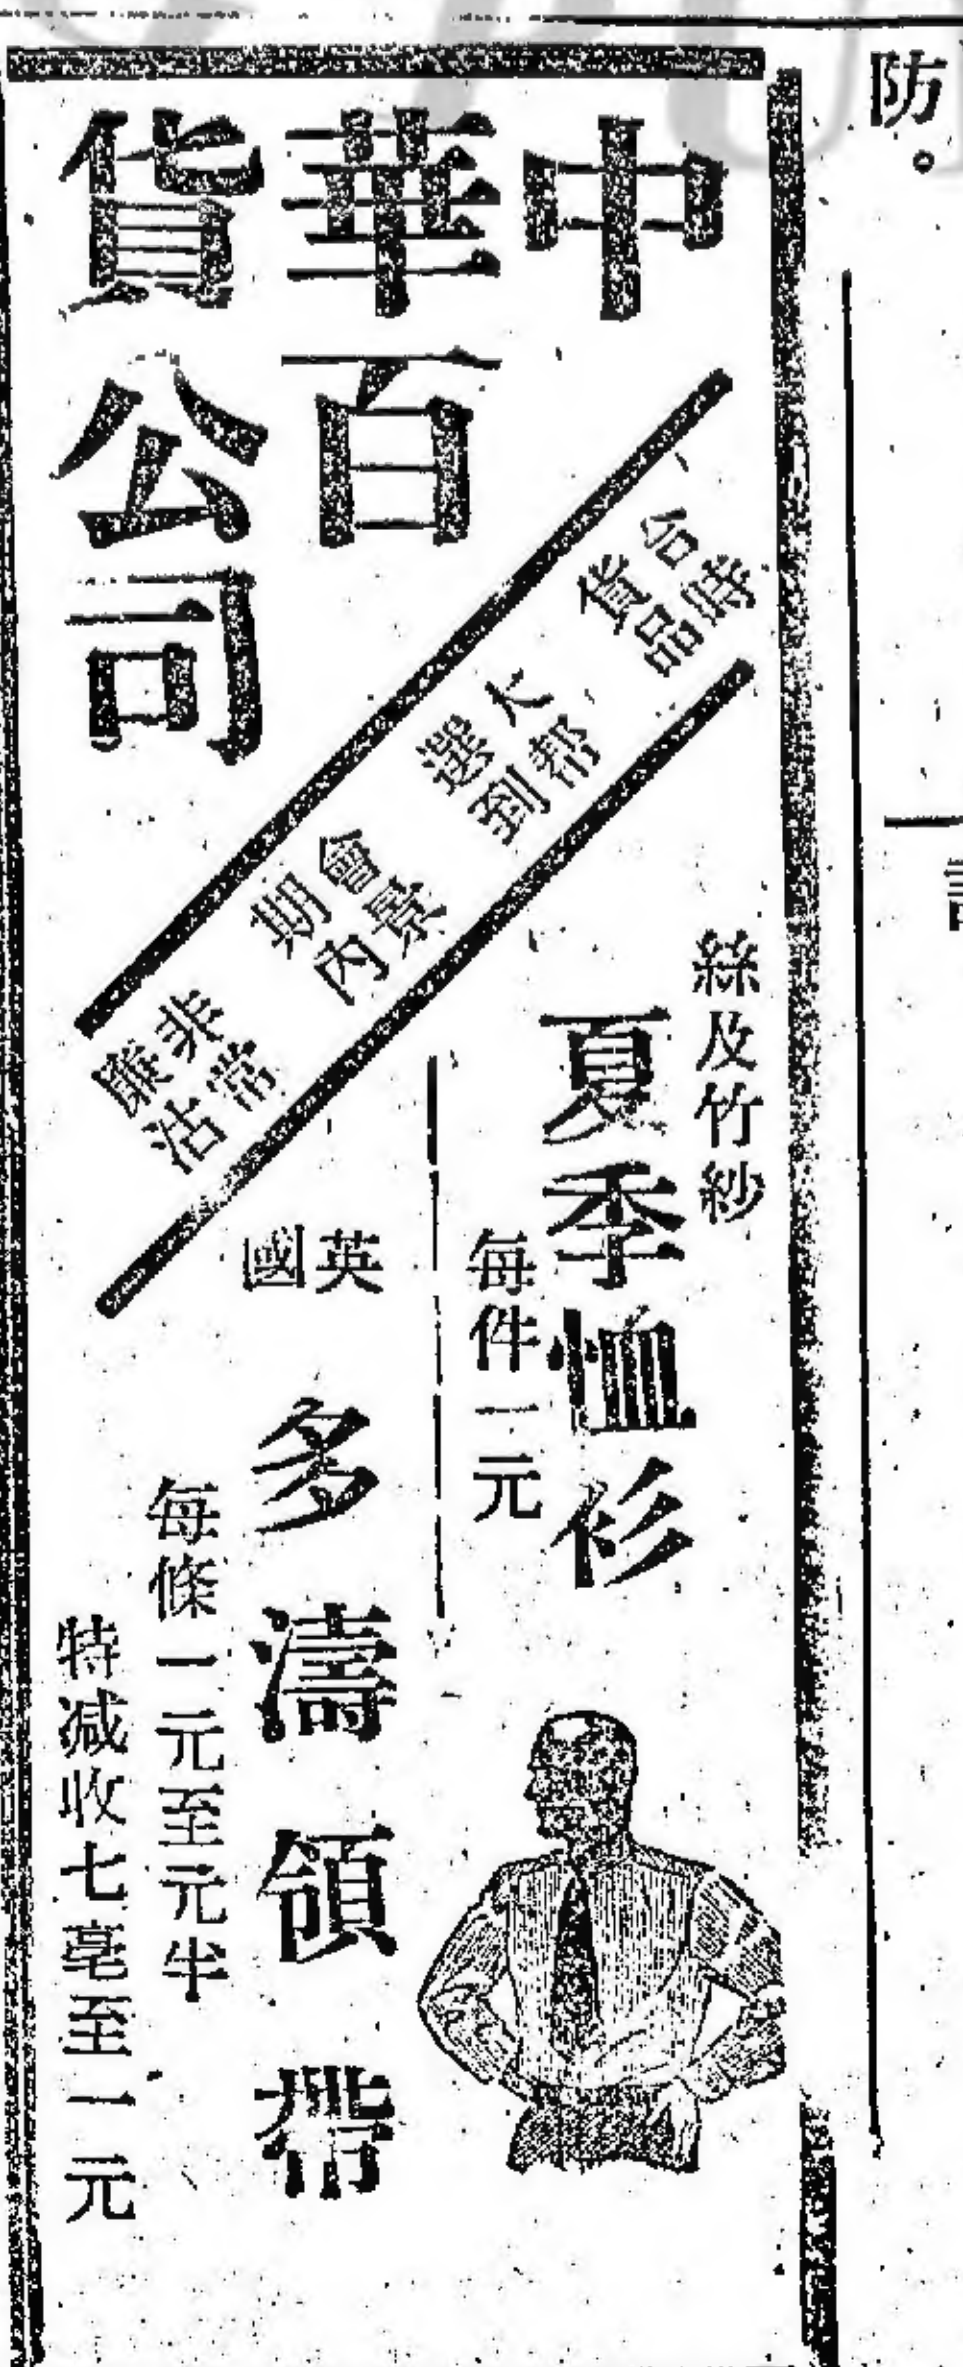 防。
中華百貨公司
合時貨品
大帮選到
會景期內
非常廉沽
絲及竹紗
夏季恤衫
每件一元
英國
多濤領帶
每條一元至元半
特减收七毫至一元